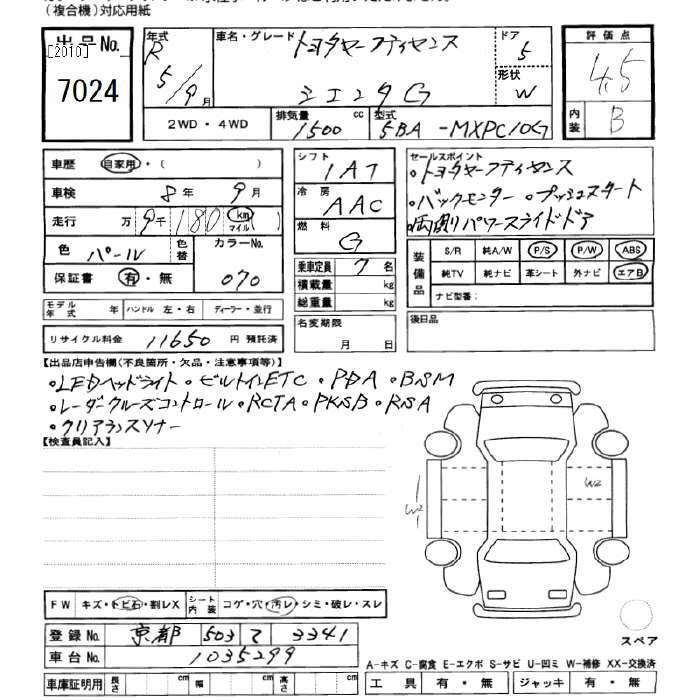 (複合機)対応用紙
出品No.
[2010]
7024
年式 R 5/9月
車名・グレード トヨタセーフティセンス
シエンタG
ドア 5
形状 W
2WD・4WD
排気量 1500 cc
型式 5BA-MXPC10G
評価点 4.5
内装 B
車歴 自家用・( )
車検 8年 9月
走行 万 9千 180 km マイル ( )
色 パール 色替 カラーNo. 070
保証書 有・無
モデル年式 年 ハンドル 左・右 ディーラー・並行
リサイクル料金 11650 円 預託済
シフト 1AT
冷房 AAC
燃料 G
乗車定員 7 名
積載量 kg
総重量 kg
名変期限 月 日
セールスポイント
・トヨタセーフティセンス
・バックモニター ・プッシュスタート
・両側パワースライドドア
装備品
S/R 純A/W P/S P/W ABS
純TV 純ナビ 革シート 外ナビ エアB
ナビ型番:
後日品
【出品店申告欄(不良箇所・欠品・注意事項等)】
・LEDヘッドライト・ビルトインETC・PDA・BSM
・レーダークルーズコントロール・RCTA・PKSB・RSA
・クリアランスソナー
【検査員記入】
W2
W2
FW キズ・トビ石・割レX シート内装 コゲ・穴・汚レ・シミ・破レ・スレ
登録No. 京都 503 て 3341
車台No. 1035299
車庫証明用 長さ cm 幅 cm 高さ cm
スペア
A-キズ C-腐食 E-エクボ S-サビ U-凹ミ W-補修 XX-交換済
工具 有・無 ジャッキ 有・無